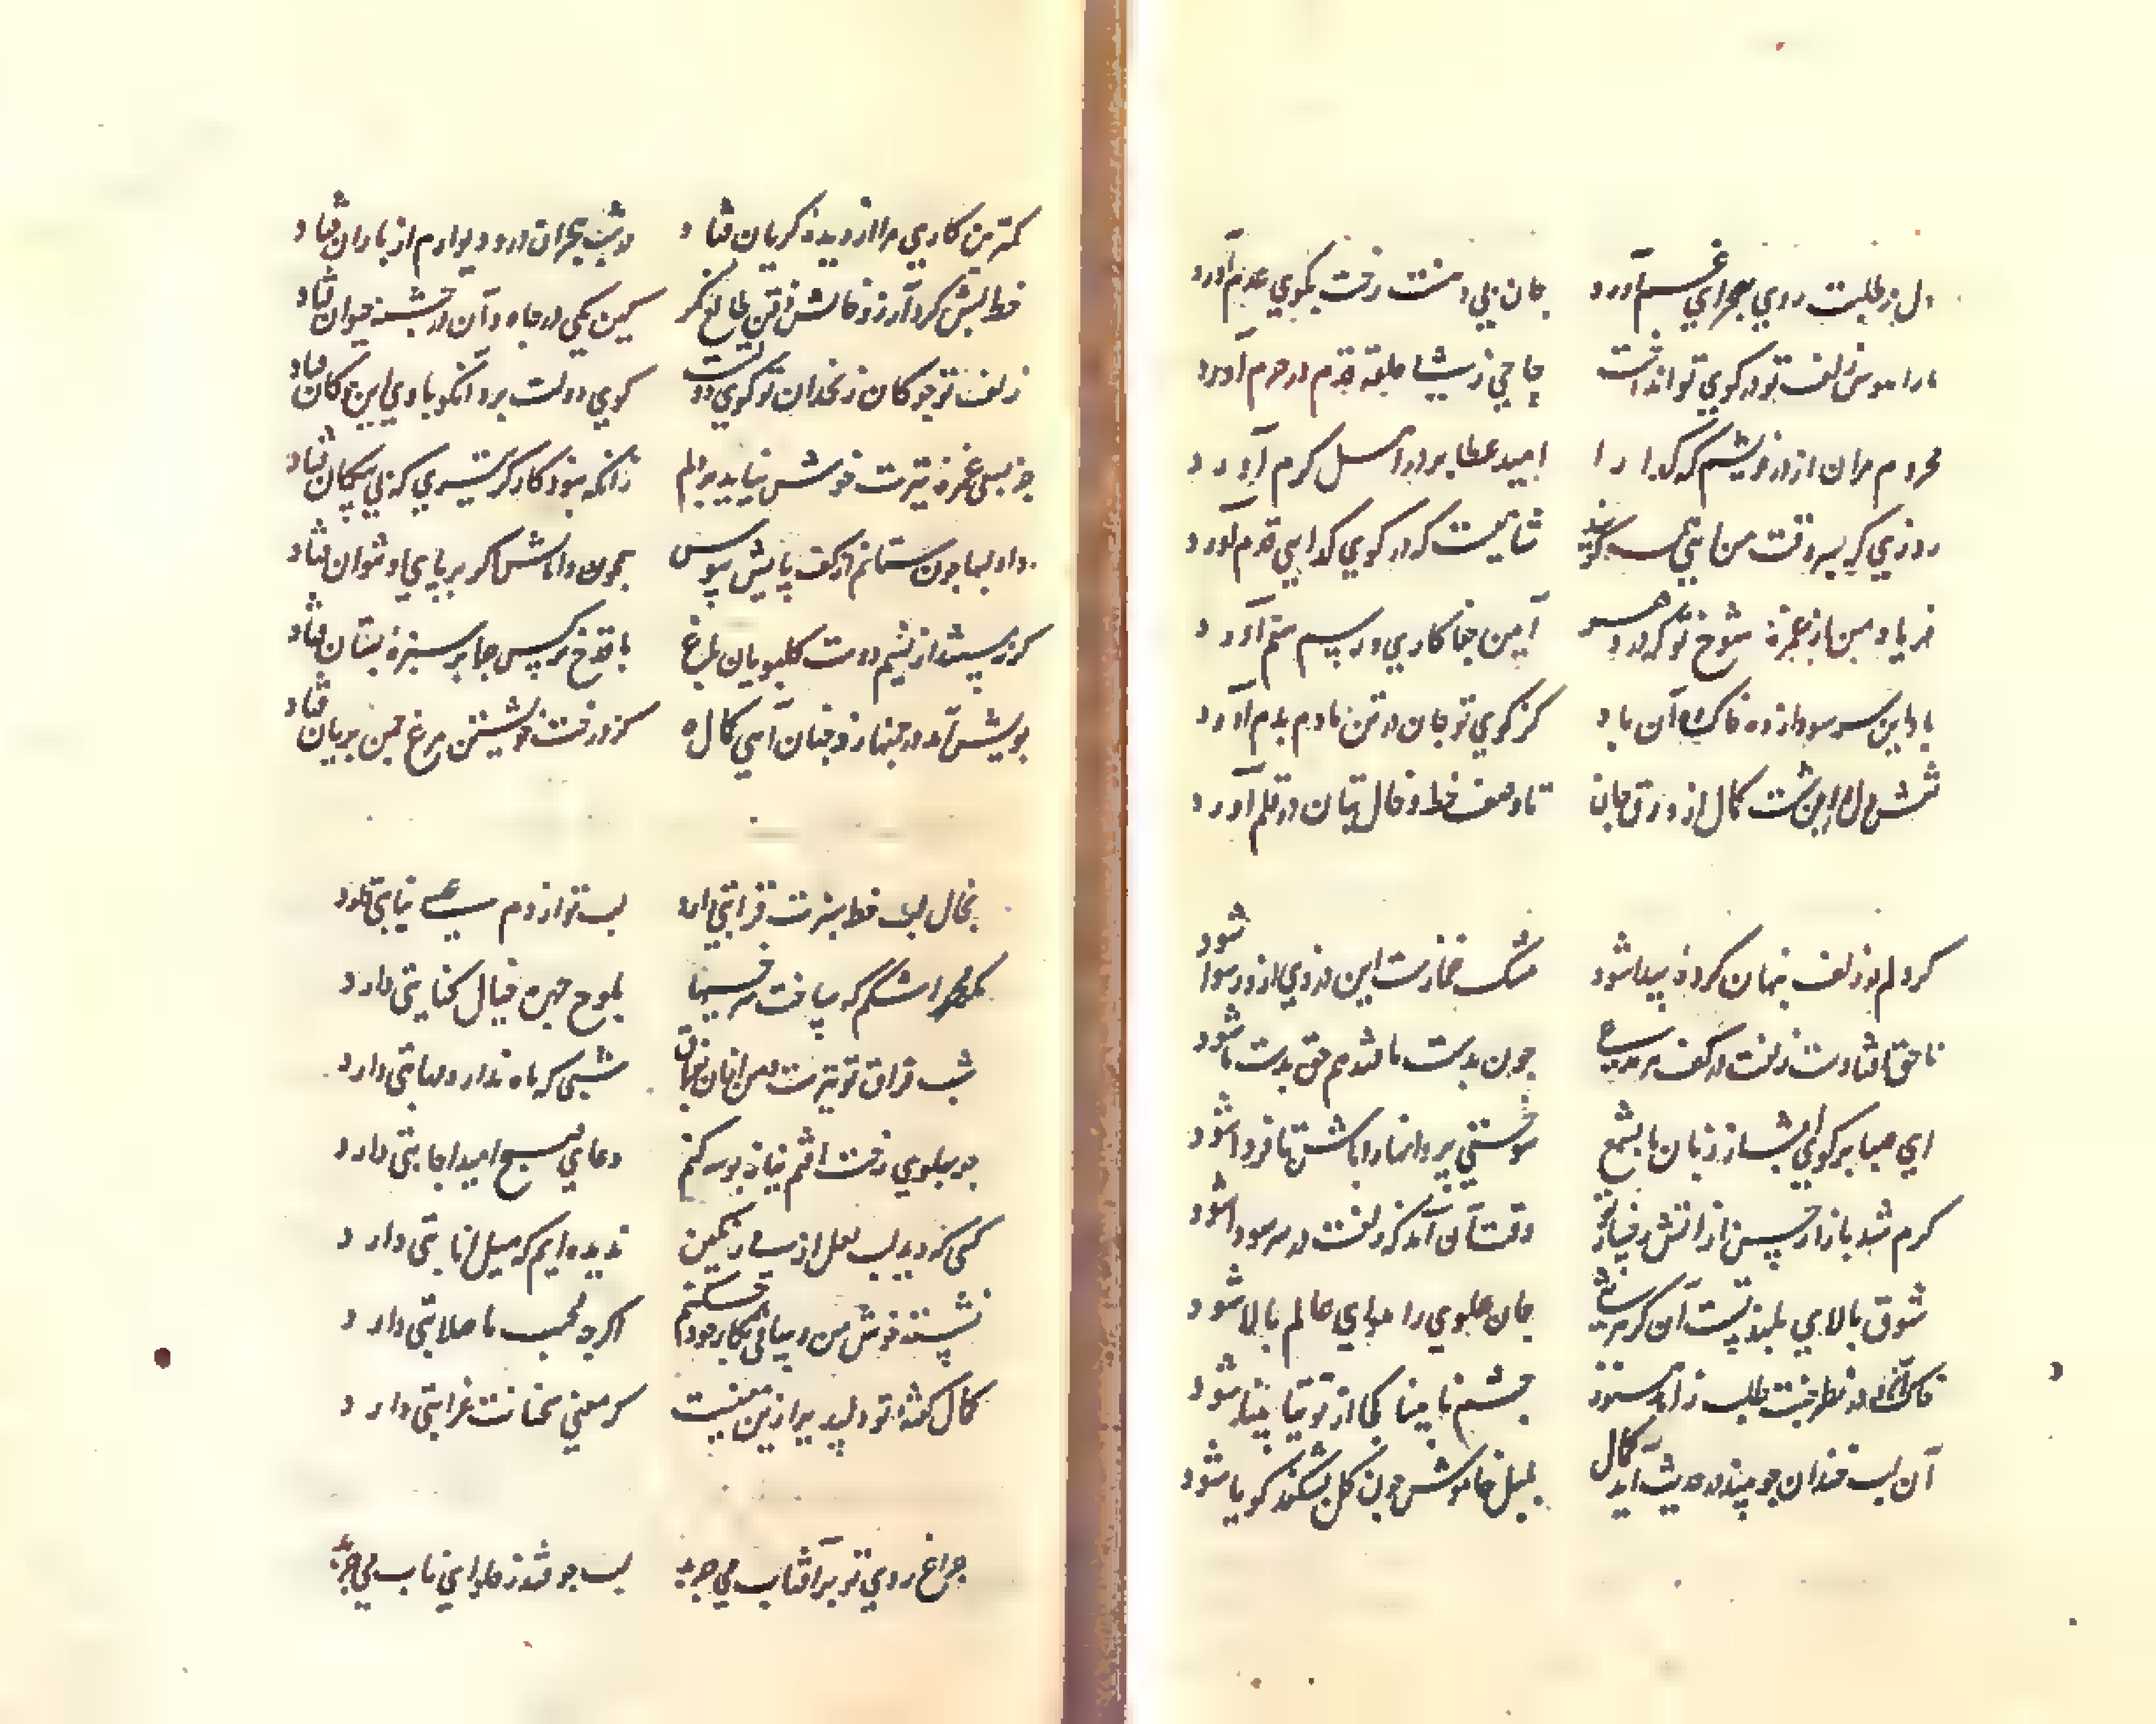 دل در طلبت روی بصحرای غم آورد جان بی دهنت رخت بکوی عدم آورد
ما را هوس زلف تو در کوی تو انداخت حاجی ز حلقه قدم در حرم آورد
محروم مران از در خویشم که کدا را امید عطا بر در اهل کرم آورد
روزی که بسروقت من آیی همه کویند شاهیست که در کوی کدایی قدم آورد
فریاد من از غمزه شوخ تو که در دهر آیین جفا کاری و رسم ستم آورد
باد این سر سودازده خاک ره آن باد کز کوی تو جان در تن مادم بدم آورد
نقش دل این است کمال از ورق جان تا وصف خط و خال بتان در قلم آورد
کر دلم در زلف پنهان کرده پیدا شود مشک غمازست این دزدی ازو رسوا شود
ناحق افتادست زلفت در کف هر مدعی چون بدست ما فتد هم حق بدست ما شود
ای صبا بر کوی شب از زبان ما بشمع سوختی پروانه را باش تا فردا شود
کرم شد بازار حسن از آتش رخسار تو وقت آن آمد که زلفت در سر سودا شود
شوق بالای بلند تست آن کز هر طرف جان علوی را هوای عالم بالا شود
خاک در نظر جنت طلب زاهد هنوز چشم نابینا کجا از توتیا بینا شود
آن لب خندان چو بیند در حدیث آید کمال بلبل خاموش چون کل بشکفد کویا شود
کمترین کاری مرا از دیده کریان فتاد در شب هجران در و دیوارم از باران فتاد
خط لبش کرد آرزو خالش ذقن طالع نکر کین یکی در چاه و آن در چشمه حیوان فتاد
زلف تو چوکان زنخدان تو کوی دولتست کوی دولت برد آنکو با وی این چوکان فتاد
جز بسی غمزه تیرت خوش نیاید بر دلم زانکه نبود کارکر تیری که بی پیکان فتاد
داد لبها چون ستانم از کف پایش ببوس چون دامانش اکر بر پای او نتوان فتاد
کوز سیستد از نسیم دوست کلبویان باغ با قدح نرکس چرا بر سبزه بستان فتاد
بویش آمد در چمنها زو چنان آهی کمال کز درخت خویشتن مرغ چمن بریان فتاد
بخال لب خط سبزت قرابتی دارد لب تو از دم عیسی نیابتی دارد
بلوح چهره خیال کتابتی دارد
شب فراق تو تیرست شبی که ماه ندارد مهابتی دارد
چو پهلوی رخت افتم نیاز بوسه کنم دعای صبح امید اجابتی دارد
کسی که دید لب لعل از می رنکین ندیده ایم که میل انابتی دارد
نشسته خوش من و ساقی بکار خود محکم اکرچه محتسب ما صلابتی دارد
کمال کفته تو دلپذیر ازین معنیست که معنی سخنانت غرابتی دارد
چراغ روی تو بر آفتاب می چربد لب چو قند ز حلوای ناب می چربد